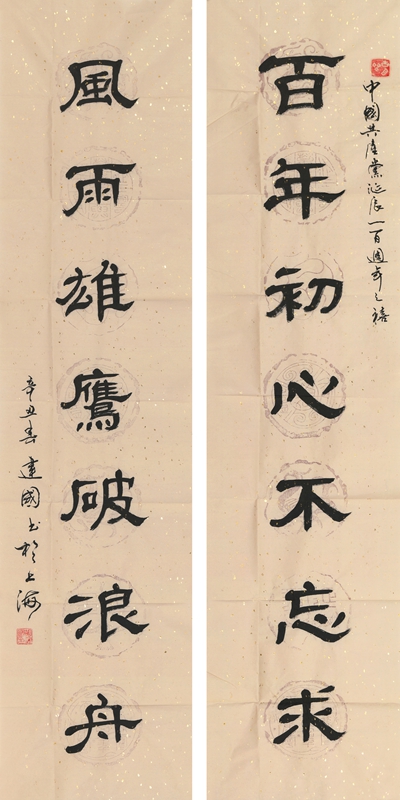 中國共產黨誕辰一百週年之禧
百年初心不忘求
風雨雄鷹破浪舟
辛丑春建國书於上海